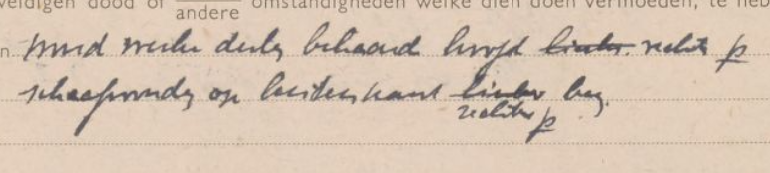 veldigen dood of andere omstandigheden welke dien doen vermoeden, te heb
n wond weeke deelen behaard hoofd links rechts p
schaafwonden op buitenkant linker been
rechter p